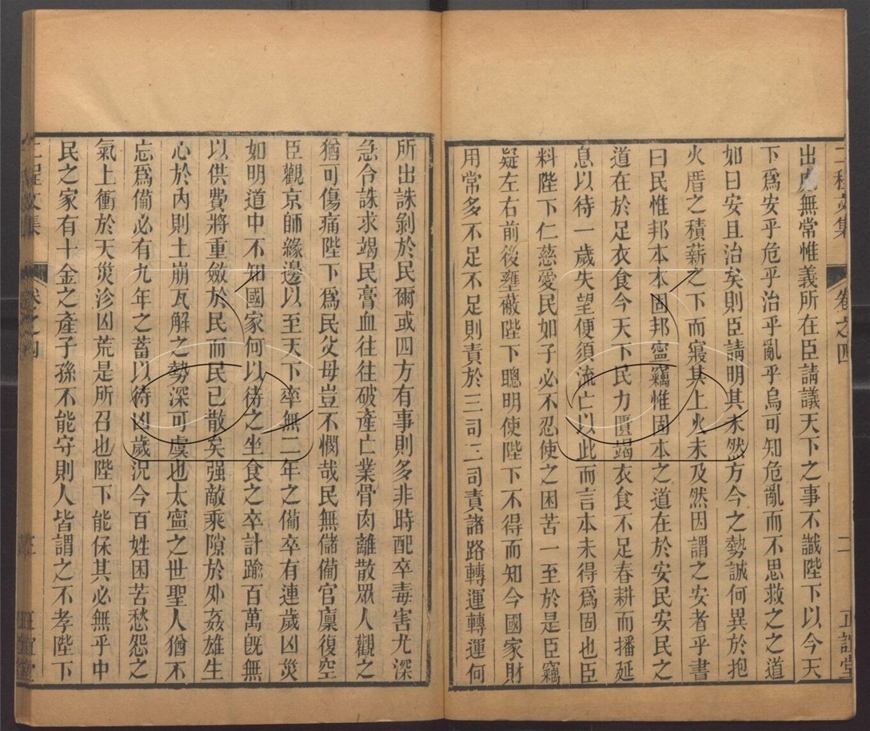 二程文集 卷之四 二 正誼堂
出處無常惟義所在臣請議天下之事不識陛下以今天
下爲安乎危乎治乎亂乎烏可知危亂而不思救之之道
如曰安且治矣則臣請明其未然方今之勢誠何異於抱
火厝之積薪之下而寢其上火未及然因謂之安者乎書
曰民惟邦本本固邦寧竊惟固本之道在於安民安民之
道在於足衣食今天下民力匱竭衣食不足春耕而播延
息以待一歲失望便須流亡以此而言本未得爲固也臣
料陛下仁慈愛民如子必不忍使之困苦一至於是臣竊
疑左右前後壅蔽陛下聰明使陛下不得而知今國家財
用常多不足不足則責於三司三司責諸路轉運轉運何
所出誅剝於民爾或四方有事則多非時配卒毒害尤深
急令誅求竭民膏血往往破產亡業骨肉離散眾人觀之
猶可傷痛陛下爲民父母豈不憫哉民無儲備官廩復空
臣觀京師緣邊以至天下率無二年之備卒有連歲凶災
如明道中不知國家何以待之坐食之卒計踰百萬旣無
以供費將重斂於民而民已散矣强敵乘隙於外姦雄生
心於內則土崩瓦解之勢深可虞也太寧之世聖人猶不
忘爲備必有九年之蓄以待凶歲況今百姓困苦愁怨之
氣上衝於天災沴凶荒是所召也陛下能保其必無乎中
民之家有十金之產子孫不能守則人皆謂之不孝陛下
二程文集 卷之四 正誼堂